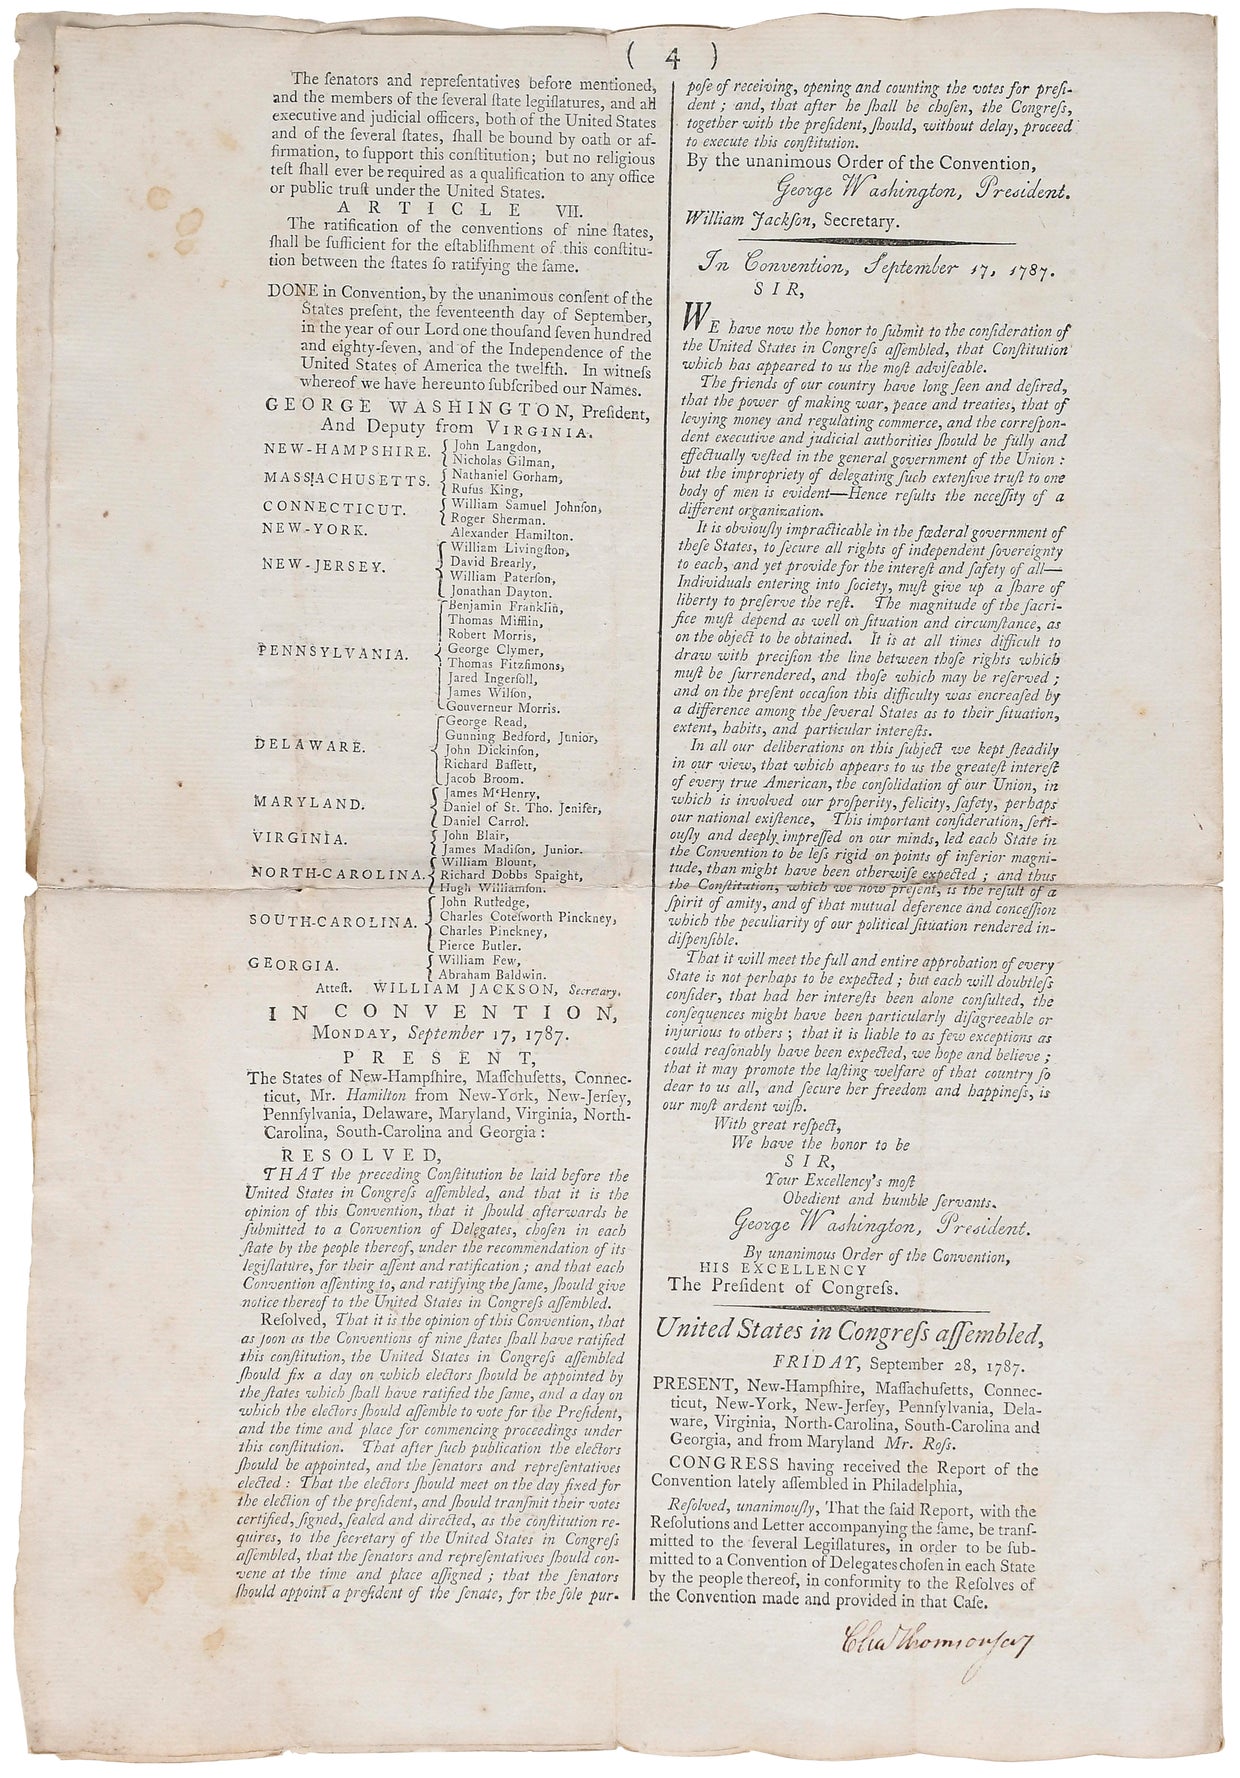 ( 4 )
The ſenators and repreſentatives before mentioned,
and the members of the ſeveral ſtate legiſlatures, and all
executive and judicial officers, both of the United States
and of the ſeveral ſtates, ſhall be bound by oath or af-
firmation, to ſupport this conſtitution; but no religious
teſt ſhall ever be required as a qualification to any office
or public truſt under the United States.
ARTICLE VII.
The ratification of the conventions of nine ſtates,
ſhall be ſufficient for the eſtabliſhment of this conſtitu-
tion between the ſtates ſo ratifying the ſame.
DONE in Convention, by the unanimous conſent of the
States preſent, the ſeventeenth day of September,
in the year of our Lord one thouſand ſeven hundred
and eighty-ſeven, and of the Independence of the
United States of America the twelfth. In witneſs
whereof we have hereunto ſubſcribed our Names.
GEORGE WASHINGTON, Preſident,
And Deputy from VIRGINIA.
NEW-HAMPSHIRE. { John Langdon,
Nicholas Gilman,
MASSACHUSETTS. { Nathaniel Gorham,
Rufus King,
CONNECTICUT. { William Samuel Johnſon,
Roger Sherman.
NEW-YORK. Alexander Hamilton.
NEW-JERSEY. { William Livingſton,
David Brearly,
William Paterſon,
Jonathan Dayton.
PENNSYLVANIA. { Benjamin Franklin,
Thomas Mifflin,
Robert Morris,
George Clymer,
Thomas Fitzſimons,
Jared Ingerſoll,
James Wilſon,
Gouverneur Morris.
DELAWARE. { George Read,
Gunning Bedford, Junior,
John Dickinſon,
Richard Baſſett,
Jacob Broom.
MARYLAND. { James MᶜHenry,
Daniel of St. Tho. Jenifer,
Daniel Carrol.
VIRGINIA. { John Blair,
James Madiſon, Junior.
NORTH-CAROLINA. { William Blount,
Richard Dobbs Spaight,
Hugh Williamſon.
SOUTH-CAROLINA. { John Rutledge,
Charles Coteſworth Pinckney,
Charles Pinckney,
Pierce Butler.
GEORGIA. { William Few,
Abraham Baldwin.
Atteſt. WILLIAM JACKSON, Secretary.
IN CONVENTION,
MONDAY, September 17, 1787.
PRESENT,
The States of New-Hampſhire, Maſſchuſetts, Connec-
ticut, Mr. Hamilton from New-York, New-Jerſey,
Pennſylvania, Delaware, Maryland, Virginia, North-
Carolina, South-Carolina and Georgia :
RESOLVED,
THAT the preceding Conſtitution be laid before the
United States in Congreſs aſſembled, and that it is the
opinion of this Convention, that it ſhould afterwards be
ſubmitted to a Convention of Delegates, choſen in each
ſtate by the people thereof, under the recommendation of its
legiſlature, for their aſſent and ratification ; and that each
Convention aſſenting to, and ratifying the ſame, ſhould give
notice thereof to the United States in Congreſs aſſembled.
Reſolved, That it is the opinion of this Convention, that
as ſoon as the Conventions of nine ſtates ſhall have ratified
this conſtitution, the United States in Congreſs aſſembled
ſhould fix a day on which electors ſhould be appointed by
the ſtates which ſhall have ratified the ſame, and a day on
which the electors ſhould aſſemble to vote for the Preſident,
and the time and place for commencing proceedings under
this conſtitution. That after ſuch publication the electors
ſhould be appointed, and the ſenators and repreſentatives
elected : That the electors ſhould meet on the day fixed for
the election of the preſident, and ſhould tranſmit their votes
certified, ſigned, ſealed and directed, as the conſtitution re-
quires, to the ſecretary of the United States in Congreſs
aſſembled, that the ſenators and repreſentatives ſhould con-
vene at the time and place aſſigned ; that the ſenators
ſhould appoint a preſident of the ſenate, for the ſole pur-
poſe of receiving, opening and counting the votes for preſi-
dent ; and, that after he ſhall be choſen, the Congreſs,
together with the preſident, ſhould, without delay, proceed
to execute this conſtitution.
By the unanimous Order of the Convention,
George Washington, President.
William Jackſon, Secretary.
In Convention, September 17, 1787.
SIR,
WE have now the honor to ſubmit to the conſideration of
the United States in Congreſs aſſembled, that Conſtitution
which has appeared to us the moſt adviſeable.
The friends of our country have long ſeen and deſired,
that the power of making war, peace and treaties, that of
levying money and regulating commerce, and the correſpon-
dent executive and judicial authorities ſhould be fully and
effectually veſted in the general government of the Union :
but the impropriety of delegating ſuch extenſive truſt to one
body of men is evident—Hence reſults the neceſſity of a
different organization.
It is obviouſly impracticable in the fœderal government of
theſe States, to ſecure all rights of independent ſovereignty
to each, and yet provide for the intereſt and ſafety of all—
Individuals entering into ſociety, muſt give up a ſhare of
liberty to preſerve the reſt. The magnitude of the ſacri-
fice muſt depend as well on ſituation and circumſtance, as
on the object to be obtained. It is at all times difficult to
draw with preciſion the line between thoſe rights which
muſt be ſurrendered, and thoſe which may be reſerved ;
and on the preſent occaſion this difficulty was encreaſed by
a difference among the ſeveral States as to their ſituation,
extent, habits, and particular intereſts.
In all our deliberations on this ſubject we kept ſteadily
in our view, that which appears to us the greateſt intereſt
of every true American, the conſolidation of our Union, in
which is involved our proſperity, felicity, ſafety, perhaps
our national exiſtence, This important conſideration, ſeri-
ouſly and deeply impreſſed on our minds, led each State in
the Convention to be leſs rigid on points of inferior magni-
tude, than might have been otherwiſe expected ; and thus
the Conſtitution, which we now preſent, is the reſult of a
ſpirit of amity, and of that mutual deference and conceſſion
which the peculiarity of our political ſituation rendered in-
diſpenſible.
That it will meet the full and entire approbation of every
State is not perhaps to be expected ; but each will doubtleſs
conſider, that had her intereſts been alone conſulted, the
conſequences might have been particularly diſagreeable or
injurious to others ; that it is liable to as few exceptions as
could reaſonably have been expected, we hope and believe ;
that it may promote the laſting welfare of that country ſo
dear to us all, and ſecure her freedom and happineſs, is
our moſt ardent wiſh.
With great reſpect,
We have the honor to be
SIR,
Your Excellency's moſt
Obedient and humble ſervants.
George Washington, President.
By unanimous Order of the Convention,
HIS EXCELLENCY
The Preſident of Congreſs.
United States in Congreſs aſſembled,
FRIDAY, September 28, 1787.
PRESENT, New-Hampſhire, Maſſachuſetts, Connec-
ticut, New-York, New-Jerſey, Pennſylvania, Dela-
ware, Virginia, North-Carolina, South-Carolina and
Georgia, and from Maryland Mr. Roſs.
CONGRESS having received the Report of the
Convention lately aſſembled in Philadelphia,
Reſolved, unanimouſly, That the ſaid Report, with the
Reſolutions and Letter accompanying the ſame, be tranſ-
mitted to the ſeveral Legiſlatures, in order to be ſub-
mitted to a Convention of Delegates choſen in each State
by the people thereof, in conformity to the Reſolves of
the Convention made and provided in that Caſe.
Chaˢ Thomson ſecy